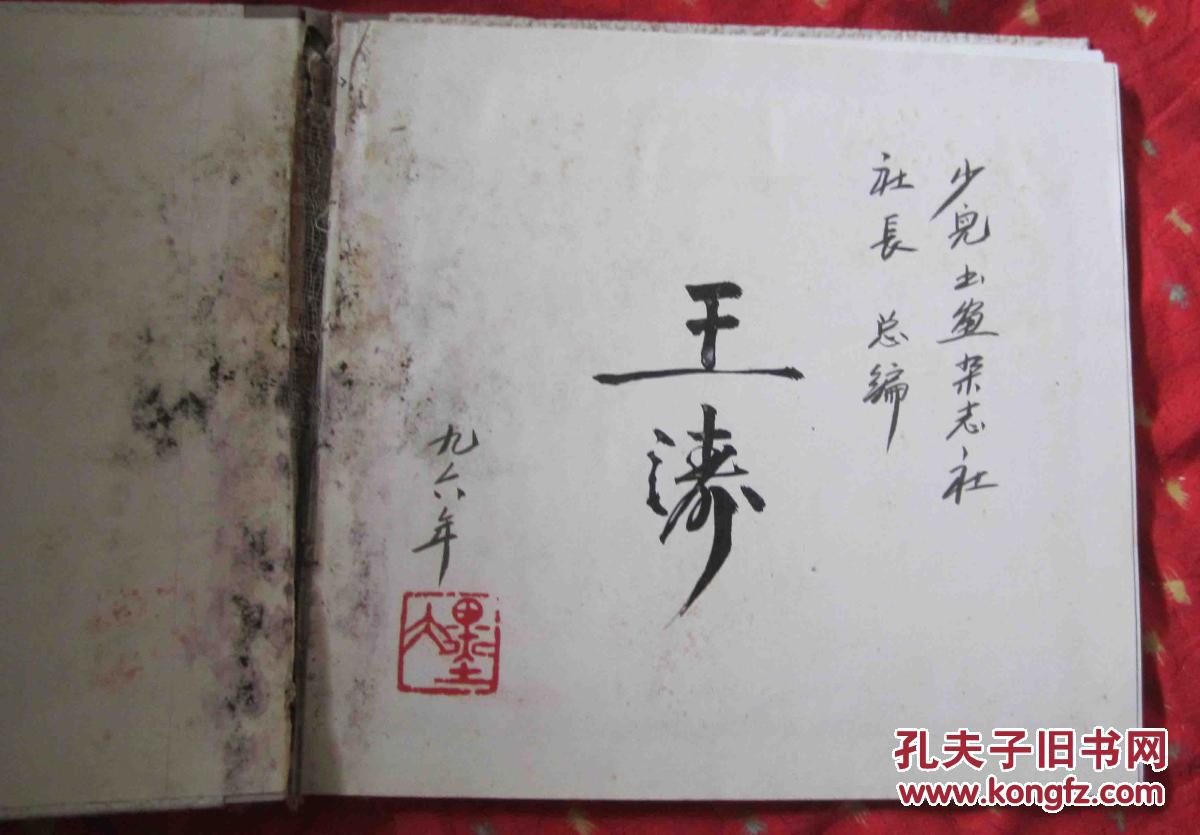 少兒书画杂志社
社長 总编
王涛
九六年
墨人
孔夫子旧书网
www.kongfz.com